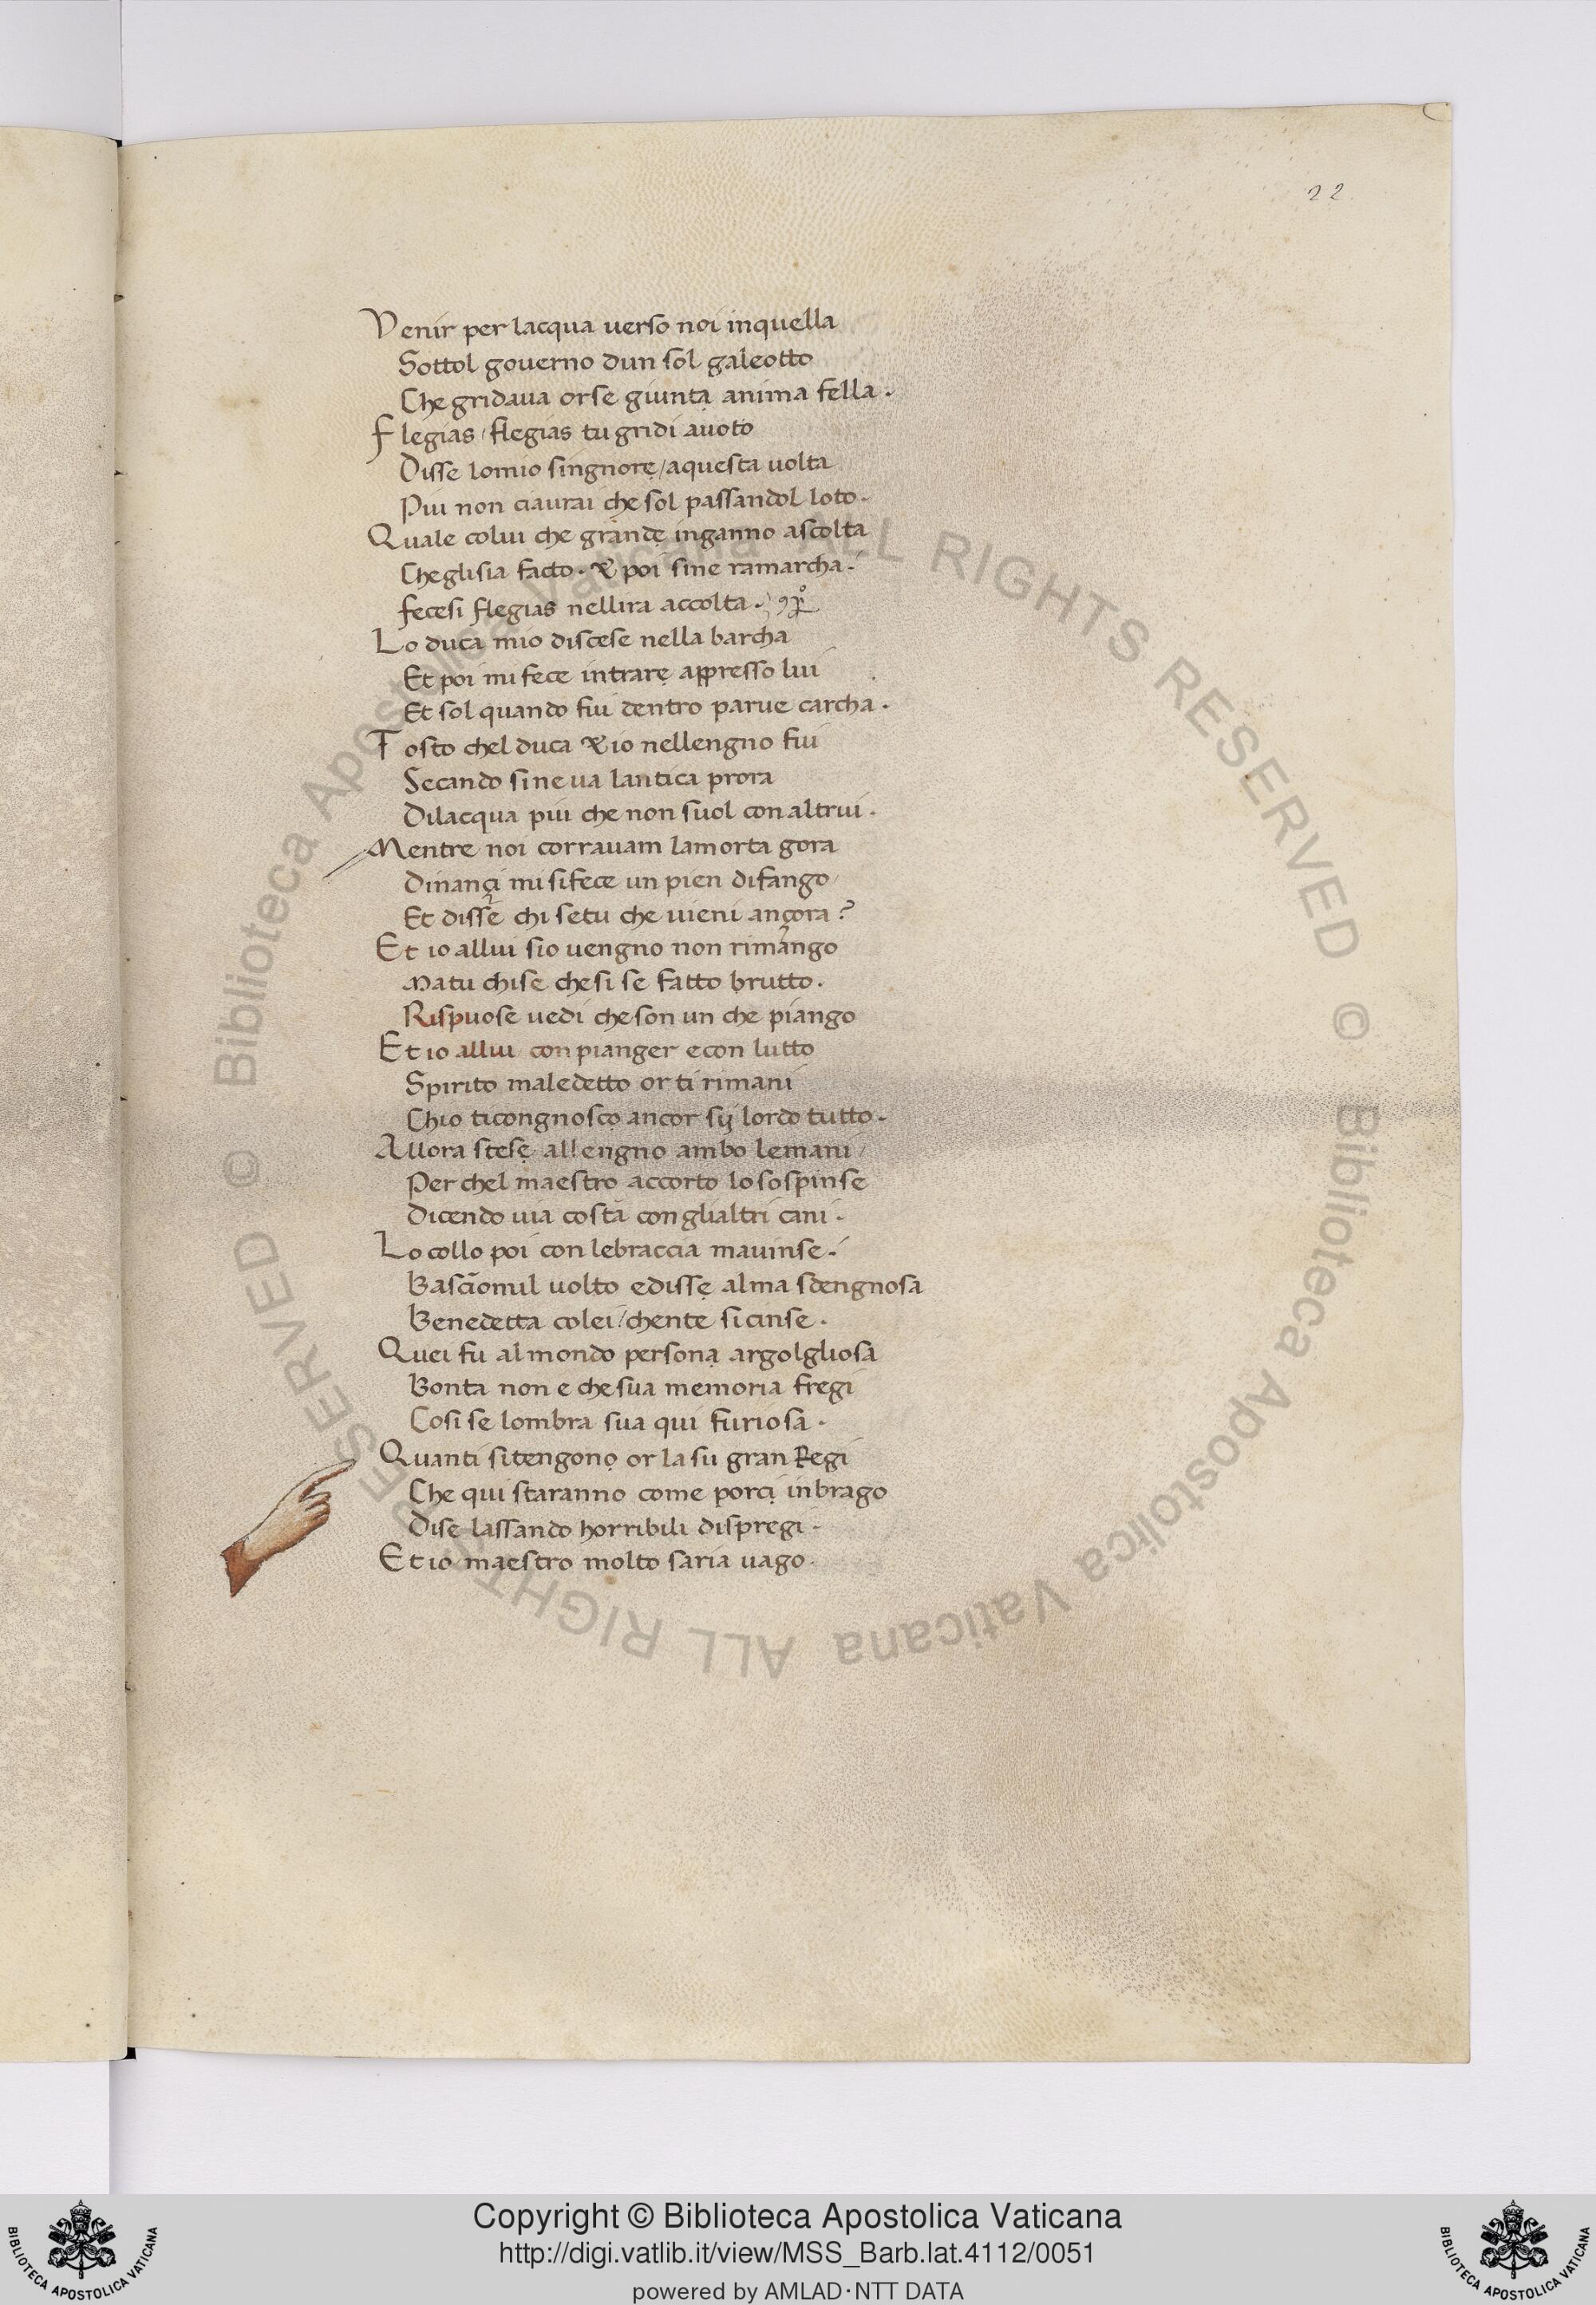 22
Venir per lacqua uerso noi inquella
Sottol gouerno dun sol galeotto
Che gridaua orse giunta anima fella.
Flegias/ flegias tu gridi auoto
Disse lomio singnore/ aquesta uolta
Piu non ciaurai che sol passandol loto.
Quale colui che grande inganno ascolta
Cheglisia facto. & poi sine ramarcha.
fecesi flegias nellira accolta.
Lo duca mio discese nella barcha
Et poi mi fece intrare appresso lui
Et sol quando fui dentro parue carcha.
Tosto chel duca & io nellengno fui
Secando sine ua lantica prora
Dilacqua piu che non suol con altrui.
Mentre noi corrauam lamorta gora
Dinançi mi sifece un pien difango
Et disse chi setu che uieni ançora?
Et io allui sio uengno non rimango
Matu chise chesi se fatto brutto.
Rispuose uedi che son un che piango
Et io allui/ con pianger e con lutto
Spirito maledetto or ti rimani
Chio ticongnosco ancor sij lordo tutto.
Allora stese allengno ambo lemani/
Per chel maestro accorto lo sospinse
Dicendo uia costa con glialtri cani.
Lo collo poi con lebraccia mauinse.
Basciomil uolto e disse alma sdengnosa
Benedetta colei/ chente sicinse.
Quei fu al mondo persona argolgliosa
Bonta non e che sua memoria fregi
Cosi se lombra sua qui furiosa.
Quanti sitengono or la su gran Regi
Che qui staranno come porci inbrago
Dise lassando horribili dispregi.
Et io maestro molto saria uago.
© Biblioteca Apostolica Vaticana ALL RIGHTS RESERVED © Biblioteca Apostolica Vaticana ALL RIGHTS RESERVED
Copyright © Biblioteca Apostolica Vaticana
http://digi.vatlib.it/view/MSS_Barb.lat.4112/0051
powered by AMLAD·NTT DATA
BIBLIOTECA APOSTOLICA VATICANA
BIBLIOTECA APOSTOLICA VATICANA